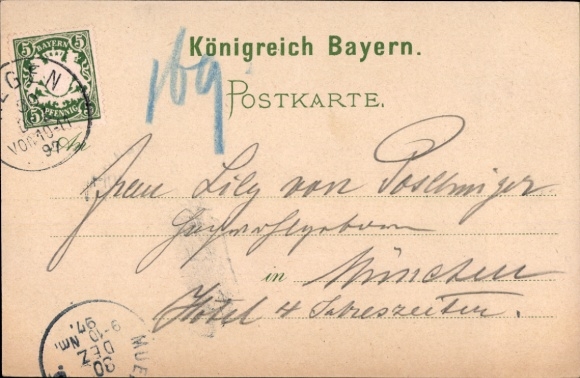 Königreich Bayern.
169
POSTKARTE.
5 BAYERN 5
5 PFENNIG 5
VOR.10-11
97
An
Frau Lily von Poschinger
Hochwohlgeboren
in München
Hotel 4 Jahreszeiten.
MUE
30
DEZ
9-10 Nm.
97.